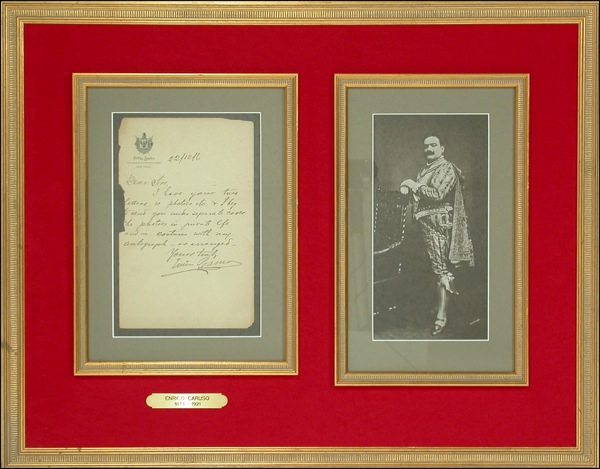 22/10/12
Dear Sir,
I have your two
letters, & photos etc. & I beg
to send you under separate cover
the photos in private life
and in costume with my
autograph – as arranged –
Yours truly
Enrico Caruso
ENRICO CARUSO
1873 - 1921